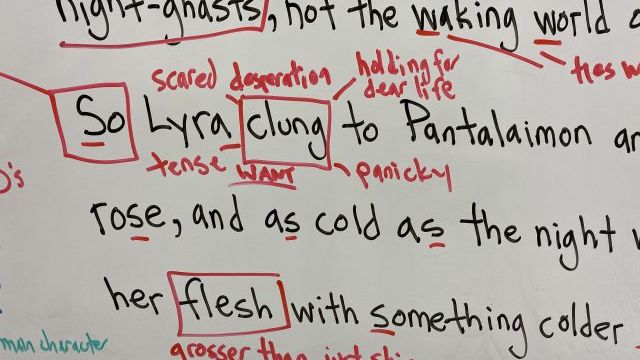 night-ghasts, not the waking world
scared desperation
holding for dear life
ties
So Lyra clung to Pantalaimon
tense
WANT
panicky
rose, and as cold as the night
her flesh with something colder
character
grosser than just